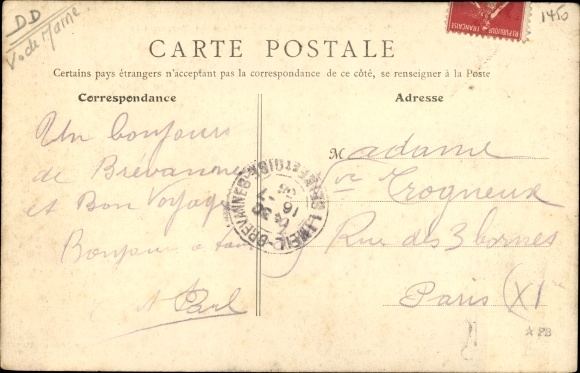 DD
V. de Marne
1450
REPUBLIQUE FRANCAISE
CARTE POSTALE
Certains pays étrangers n'acceptant pas la correspondance de ce côté, se renseigner à la Poste
Correspondance
Adresse
Un bonjour
de Brévannes
et Bon Voyage
Bonjour a tous
Madame
Vve Trogneux
Rue des 3 bornes
Paris (XI
LIMEIL-BREVANNES
SEINE-ET-OISE